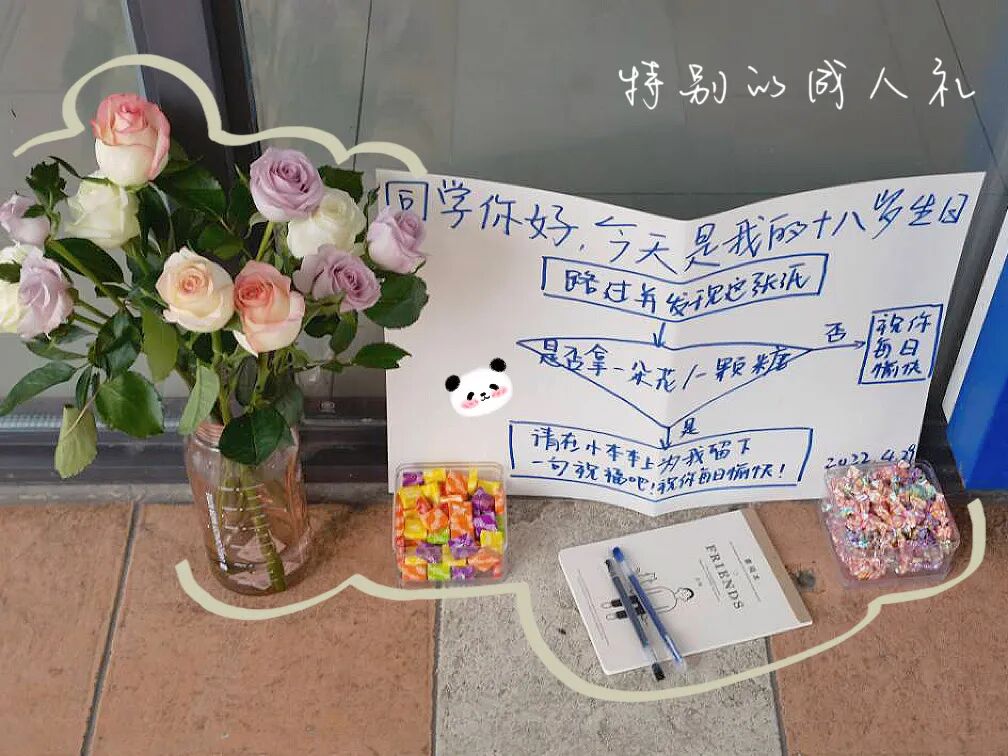 特别的成人礼
同学你好,今天是我的十八岁生日
路过并发现这张纸
是否拿一朵花/一颗糖
否
祝你
每日
愉快
是
请在小本本上为我留下
一句祝福吧!祝你每日愉快!
2022.4.29
FRIENDS